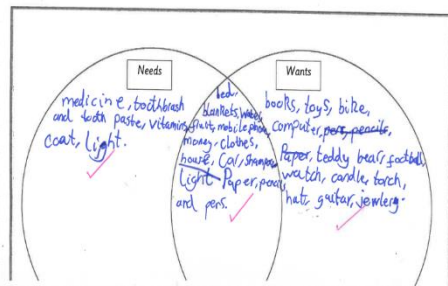 Needs
Wants
medicine, toothbrush
and tooth paste, vitamins,
coat, light.
bed,
blankets, water,
fruit, mobile phone,
money, clothes,
house, car, shampoo,
light Paper, pencil,
and pens.
books, toys, bike,
computer, pens, pencils,
Paper, teddy bear, football,
watch, candle, torch,
hat, guitar, jewlery.